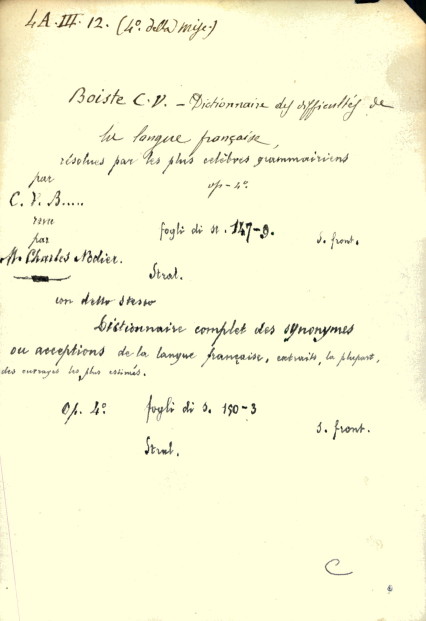 4A.III.12. (4º della misc.)
Boiste C. V. – Dictionnaire des difficultés de
la langue française,
résolues par les plus célèbres grammairiens
par
op - 4º.
C. V. B.....
revu
par
fogli di st. 147-9.
s. front.
M. Charles Nodier.
Stral.
con detto stesso
Dictionnaire complet des synonymes
ou acceptions de la langue française, extraits, la plupart,
des ouvrages les plus estimés.
Op. 4º
fogli di s. 150-3
s. front.
Stral.
C